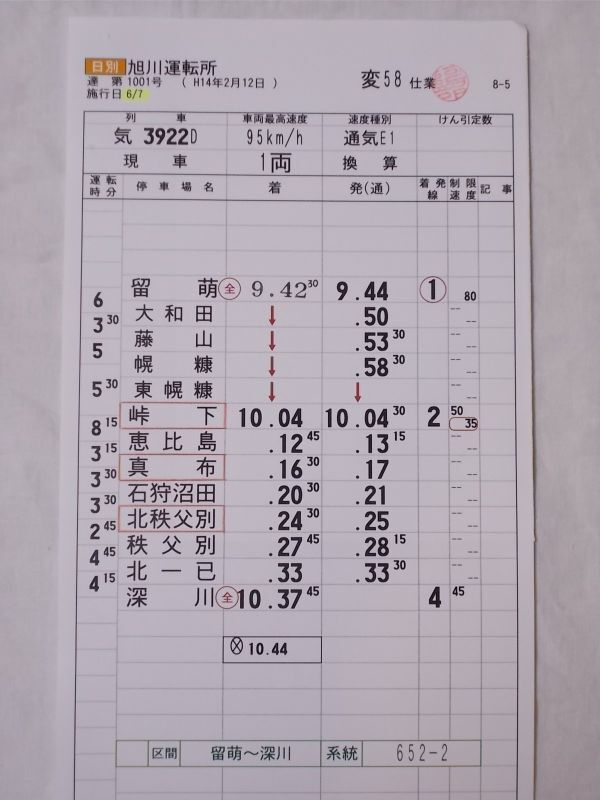 日別 旭川運転所
達 第 1001号 （ H14年2月12日 ） 変58 仕業 8-5
施行日 6/7
列 車 車両最高速度 速度種別 けん引定数
気 3922D 95km/h 通気E1
現 車 1両 換 算
運転時分 停車場名 着 発(通) 着発線 制限速度 記事
留 萌 全 9.42 30 9.44 1 80
6
大和田 ↓ .50
3 30
藤 山 ↓ .53 30
5
幌 糠 ↓ .58 30
東幌糠 ↓ ↓
5 30
峠 下 10.04 10.04 30 2 50 35
8 15
恵比島 .12 45 .13 15
3 15
真 布 .16 30 .17
3 30
石狩沼田 .20 30 .21
3 30
北秩父別 .24 30 .25
2 45
秩父別 .27 45 .28 15
4 45
北一已 .33 .33 30
4 15
深 川 全 10.37 45 4 45
⊗ 10.44
区間 留萌～深川 系統 652-2